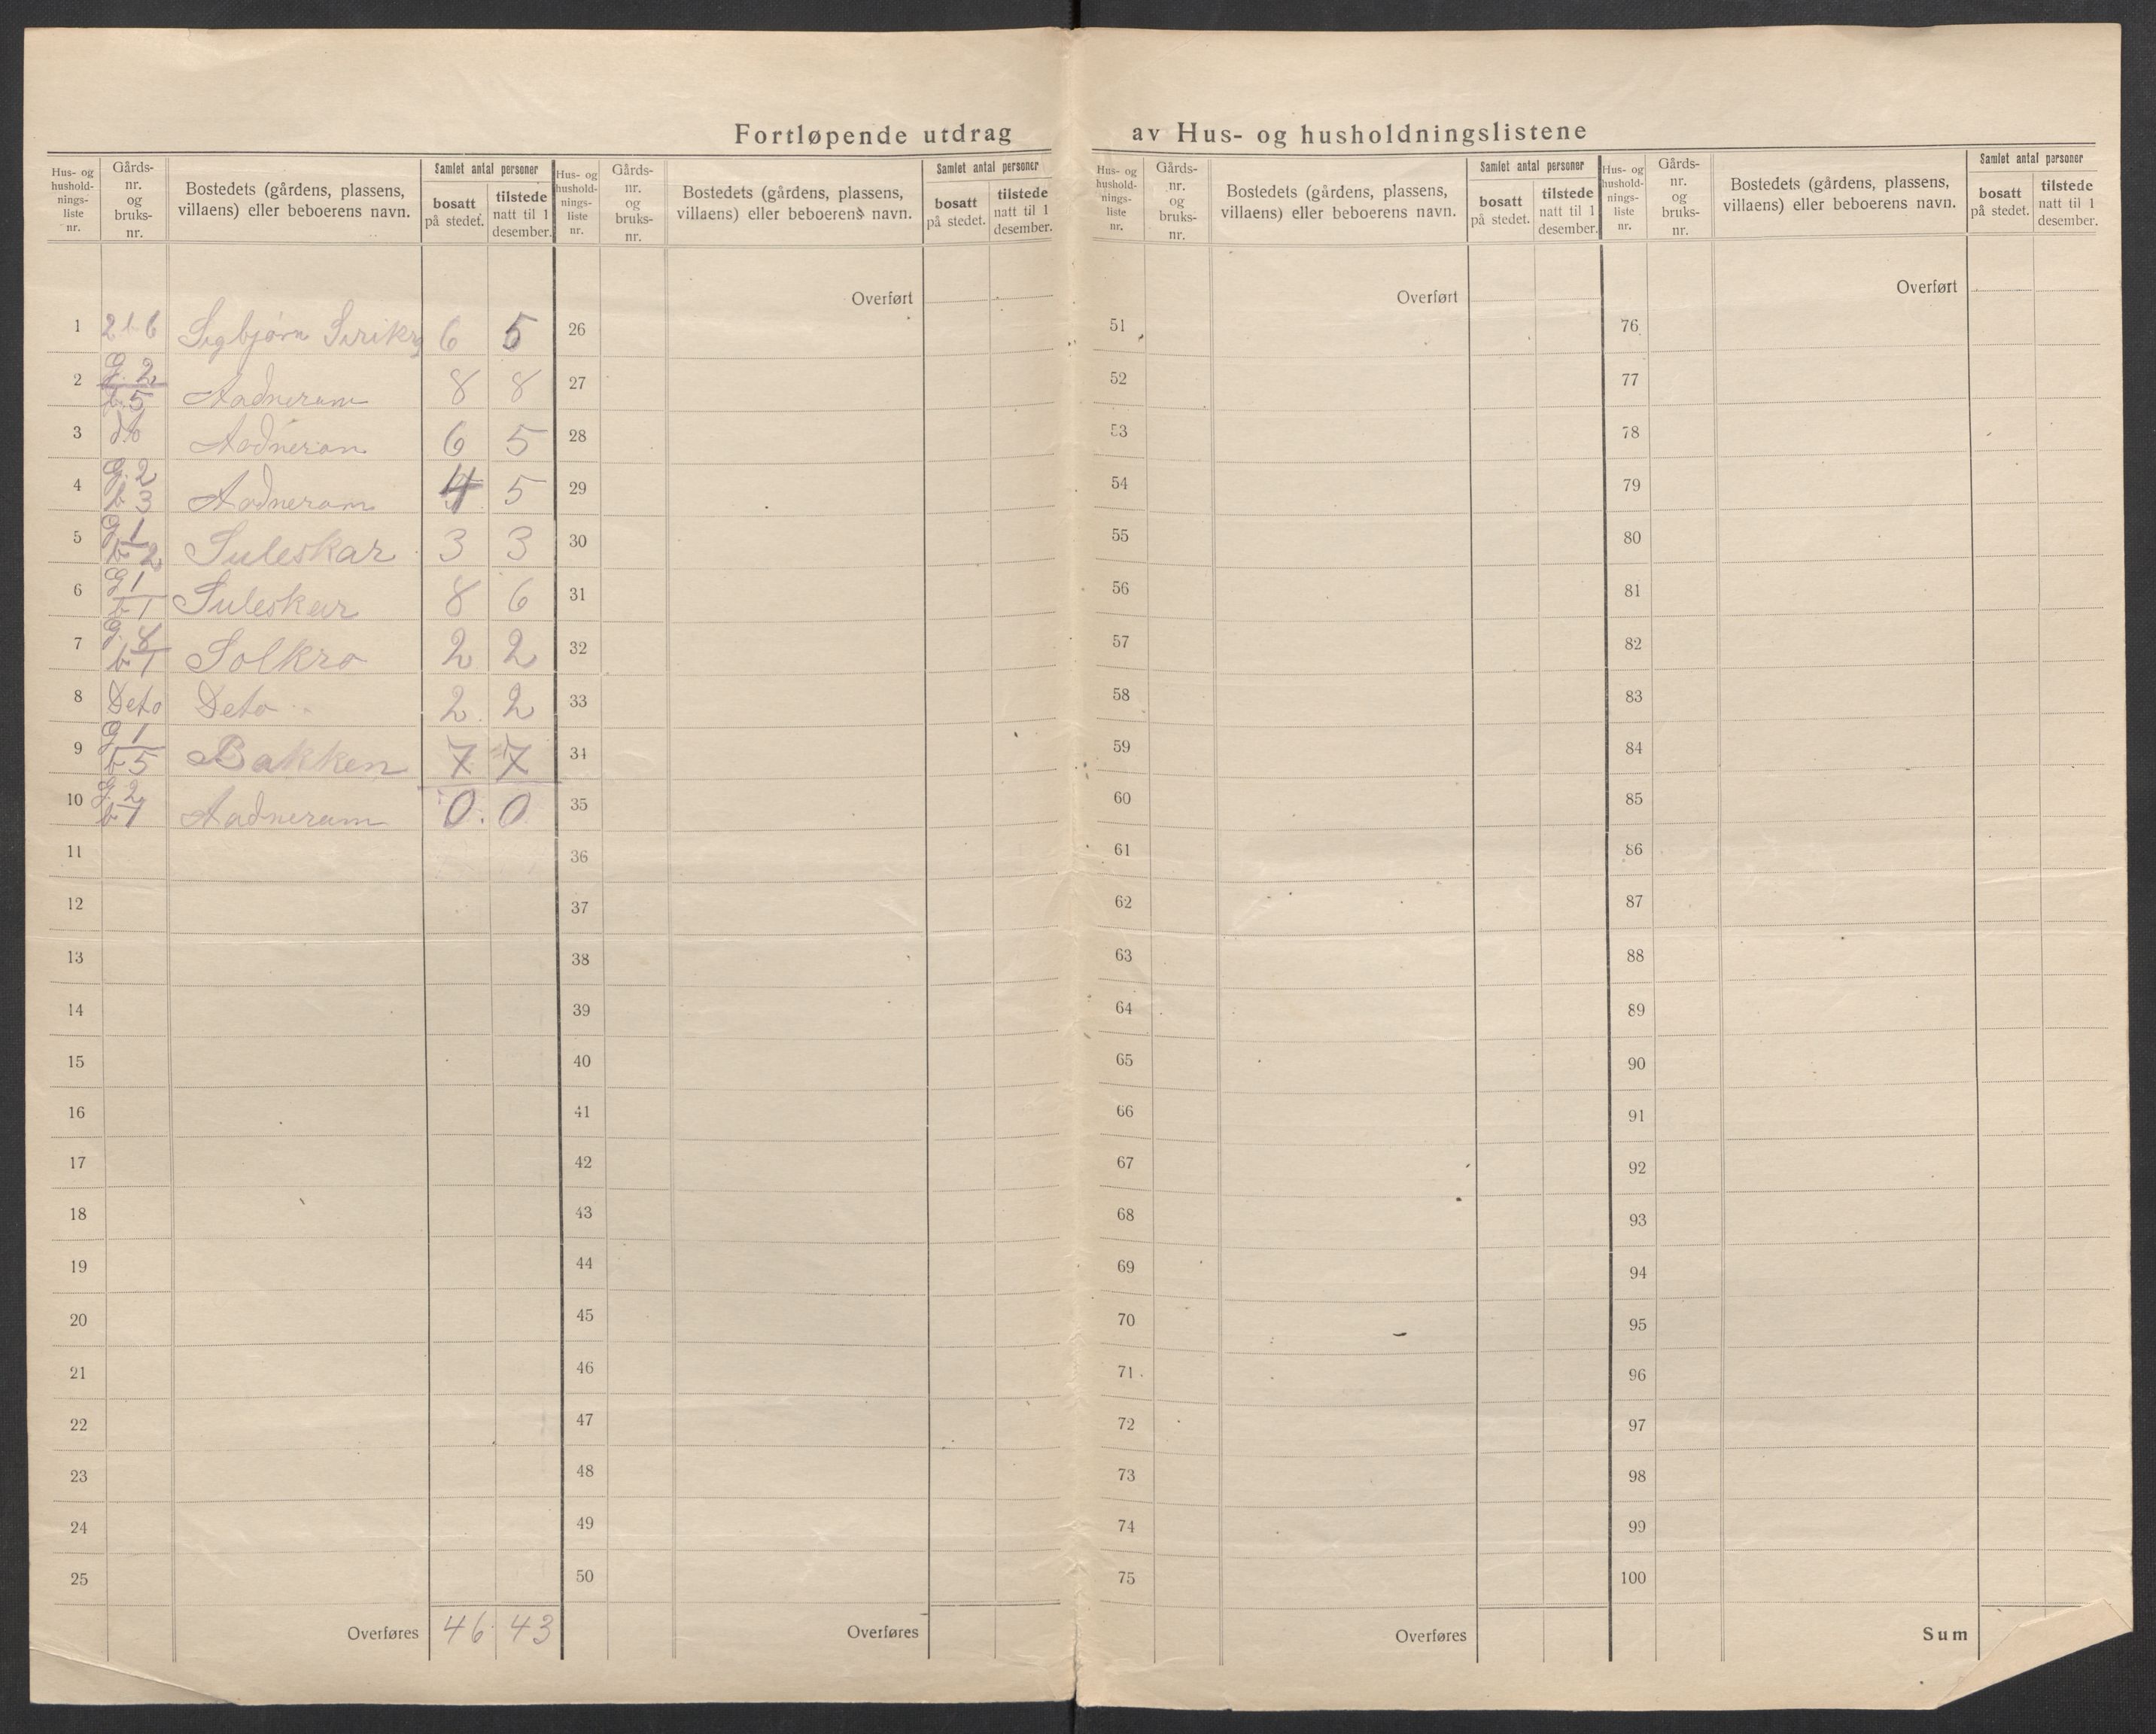 Fortløpende utdrag av Hus- og husholdningslistene
Hus- og hushold- nings- liste nr.
Gårds- nr. og bruks- nr.
Bostedets (gårdens, plassens, villaens) eller beboerens navn.
Samlet antal personer
bosatt på stedet.
tilstede natt til 1 desember.
Hus- og hushold- nings- liste nr.
Gårds- nr. og bruks- nr.
Bostedets (gårdens, plassens, villaens) eller beboerens navn.
Samlet antal personer
bosatt på stedet.
tilstede natt til 1 desember.
Hus- og hushold- nings- liste nr.
Gårds- nr. og bruks- nr.
Bostedets (gårdens, plassens, villaens) eller beboerens navn.
Samlet antal personer
bosatt på stedet.
tilstede natt til 1 desember.
Hus- og hushold- nings- liste nr.
Gårds- nr. og bruks- nr.
Bostedets (gårdens, plassens, villaens) eller beboerens navn.
Samlet antal personer
bosatt på stedet.
tilstede natt til 1 desember.
1 2 b 6 Sigbjørn 6 5
2 g. 2 b. 5 Aadneram 8 8
3 do Aadneram 6 5
4 g. 2 b 3 Aadneram 4 5
5 g 1 b 2 Suleskar 3 3
6 g 1 b 1 Suleskar 8 6
7 g. b 1 Solkro 2 2
8 Deto Deto 2 2
9 g 1 b 5 Bakken 7 7
10 g 2 b 1 Aadneram 0 0
11
12
13
14
15
16
17
18
19
20
21
22
23
24
25
Overføres 46 43
Overført
26
27
28
29
30
31
32
33
34
35
36
37
38
39
40
41
42
43
44
45
46
47
48
49
50
Overføres
Overført
51
52
53
54
55
56
57
58
59
60
61
62
63
64
65
66
67
68
69
70
71
72
73
74
75
Overføres
Overført
76
77
78
79
80
81
82
83
84
85
86
87
88
89
90
91
92
93
94
95
96
97
98
99
100
Sum